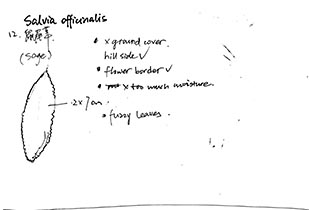 Salvia officinalis
12.
(sage)
• x ground cover.
hill side ✓
• flower border ✓
• x too much moisture
2x7 cm
• fuzzy leaves.